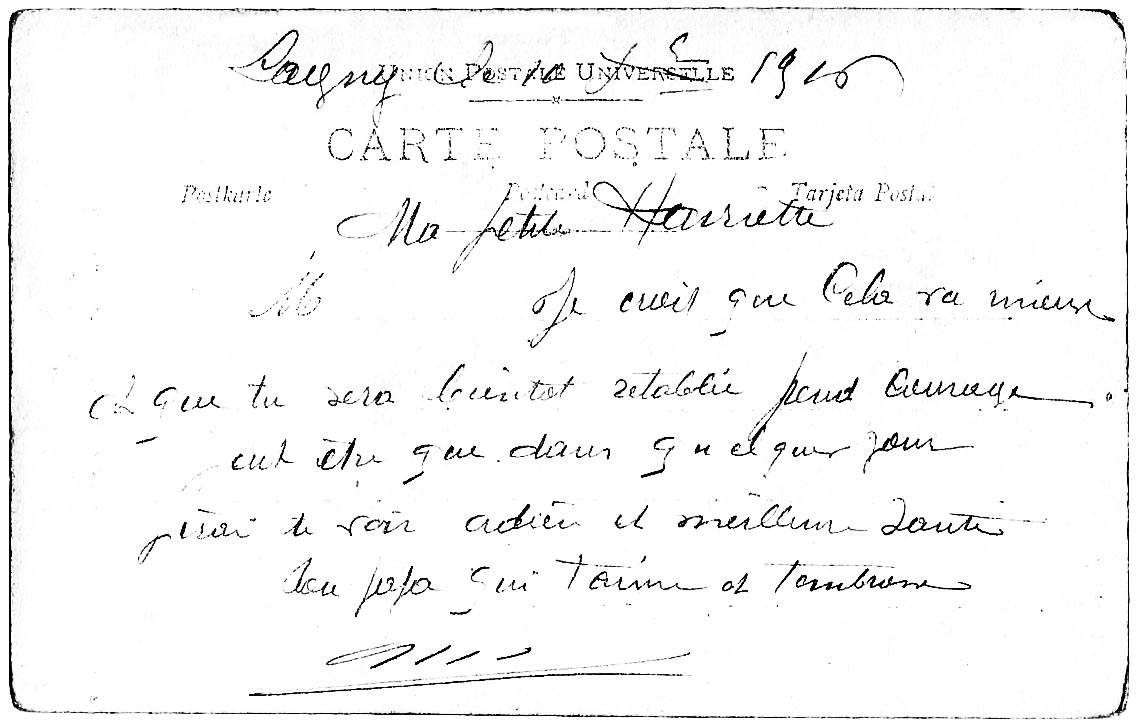 Lagny le 10 X bre 1916
UNION POSTALE UNIVERSELLE
CARTE POSTALE
Postkarte Postcard Tarjeta Postal
Ma petite Henriette
M Je croit que Cela va mieux
et que tu sera bientot retablie prend courage
eut être que dans quelques jour
j'irai te voir adieu et meilleure Santé
ton papa qui t'aime et t'embrasse